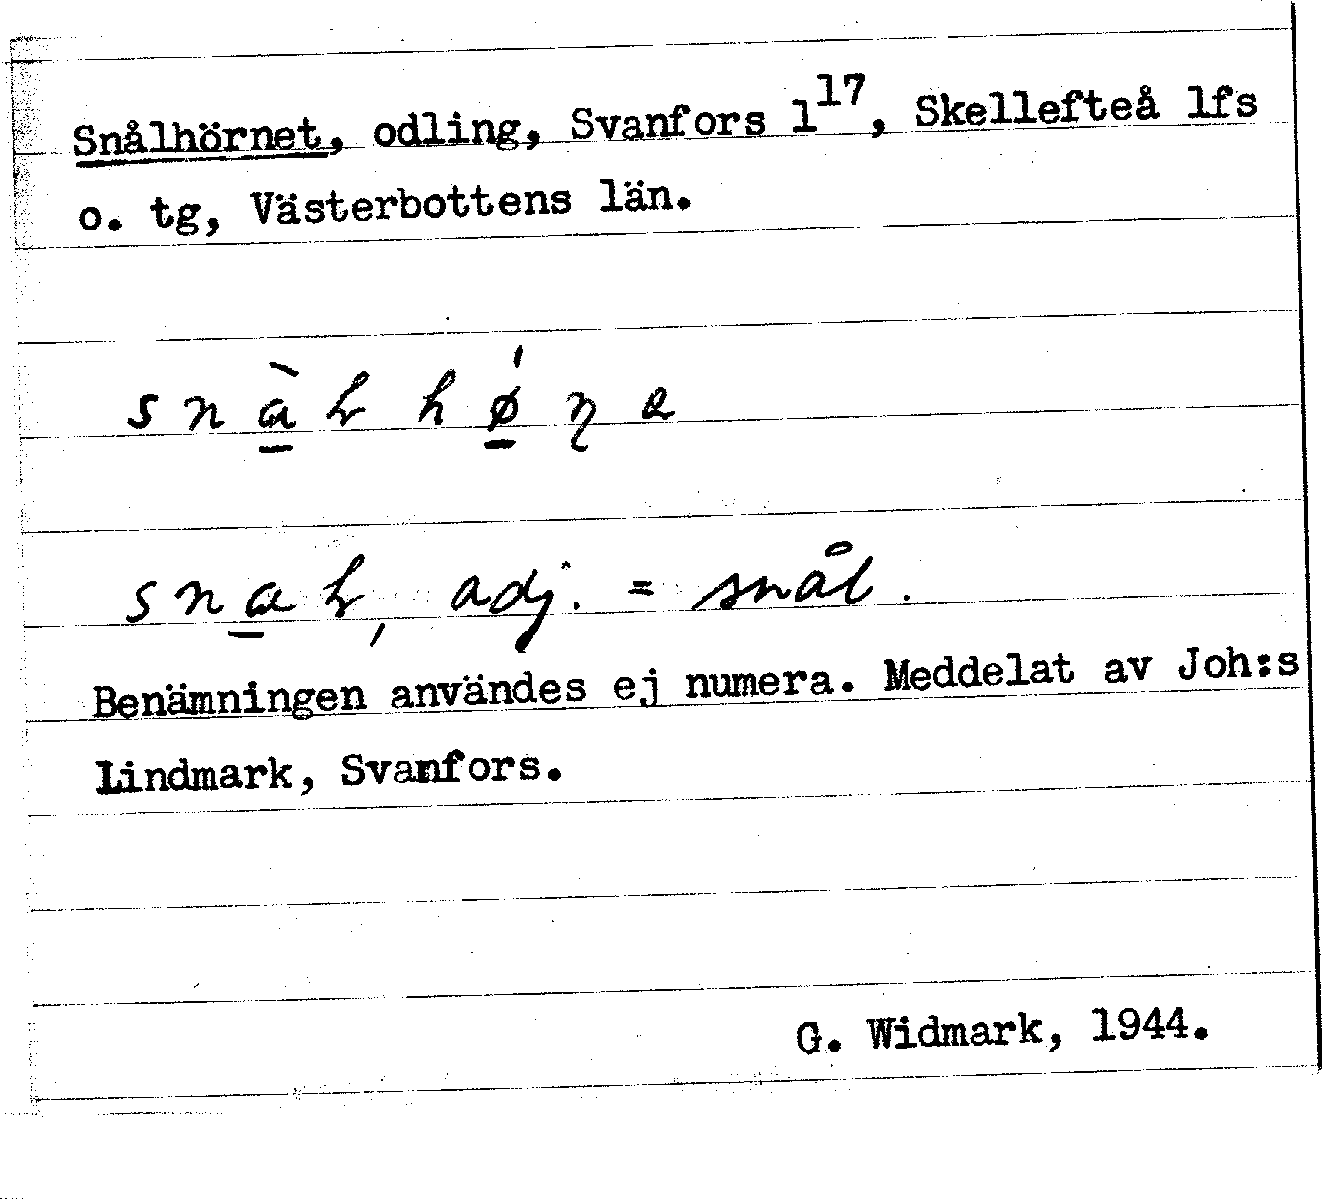 Snålhörnet, odling, Svanfors 1¹⁷, Skellefteå lfs
o. tg, Västerbottens län.
adj. = snål.
Benämningen användes ej numera. Meddelat av Joh:s
Lindmark, Svanfors.
G. Widmark, 1944.